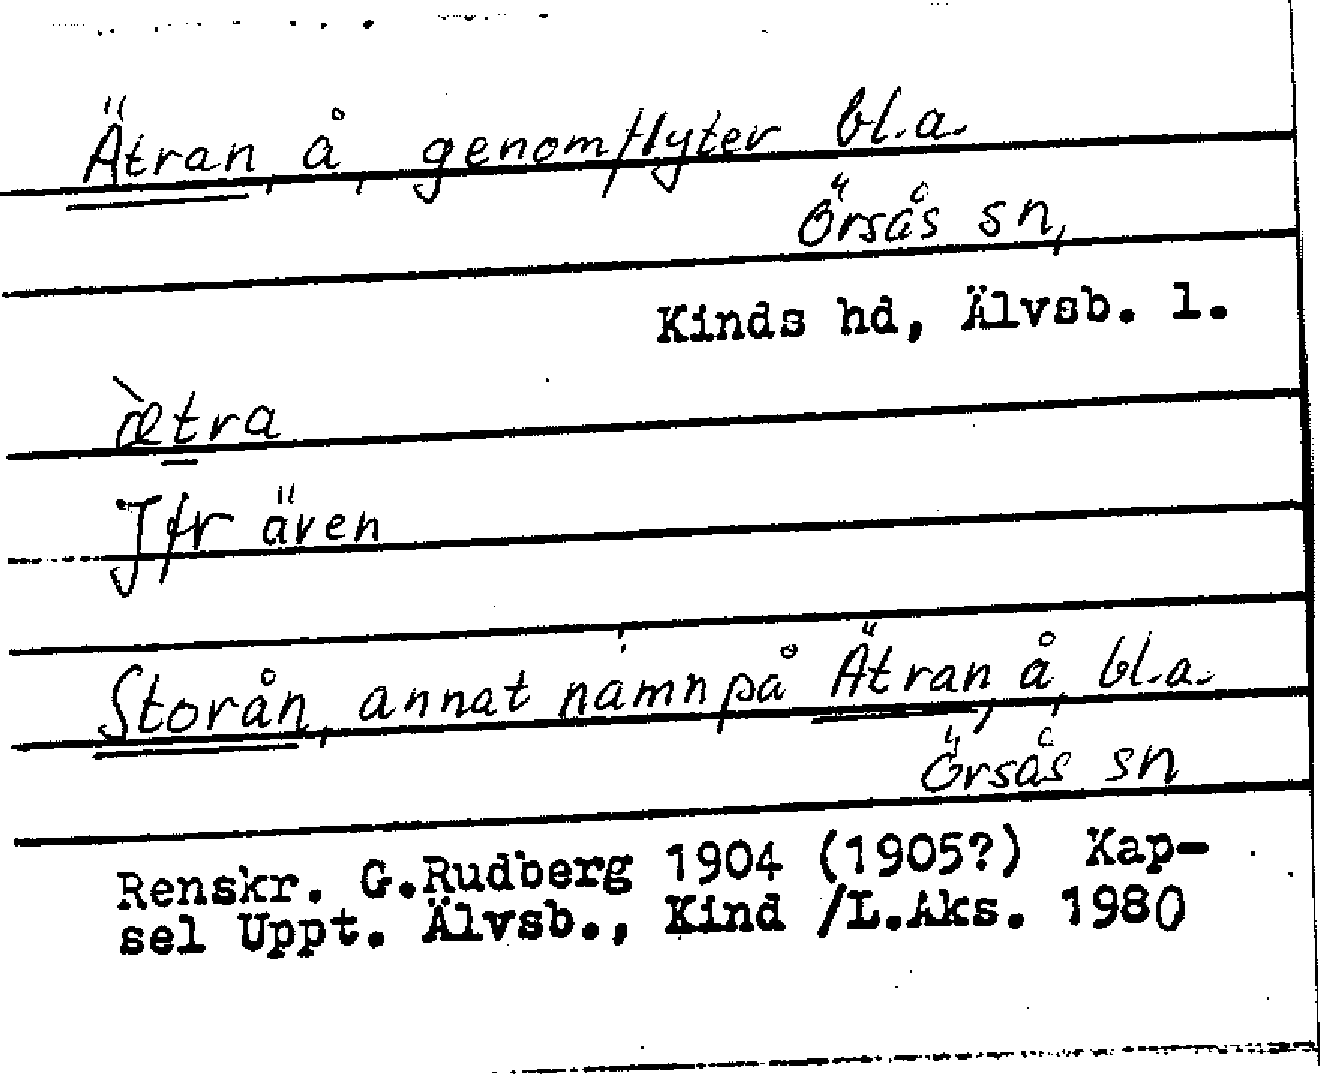 Ätran, å, genomflyter bl.a.
Örsås sn,
Kinds hd, Älvsb. l.
æ̀tra
Jfr även
Storån, annat namn på Ätran, å, bl.a.
Örsås sn
Renskr. G.Rudberg 1904 (1905?) Kap-
sel Uppt. Älvsb., Kind /L.Aks. 1980